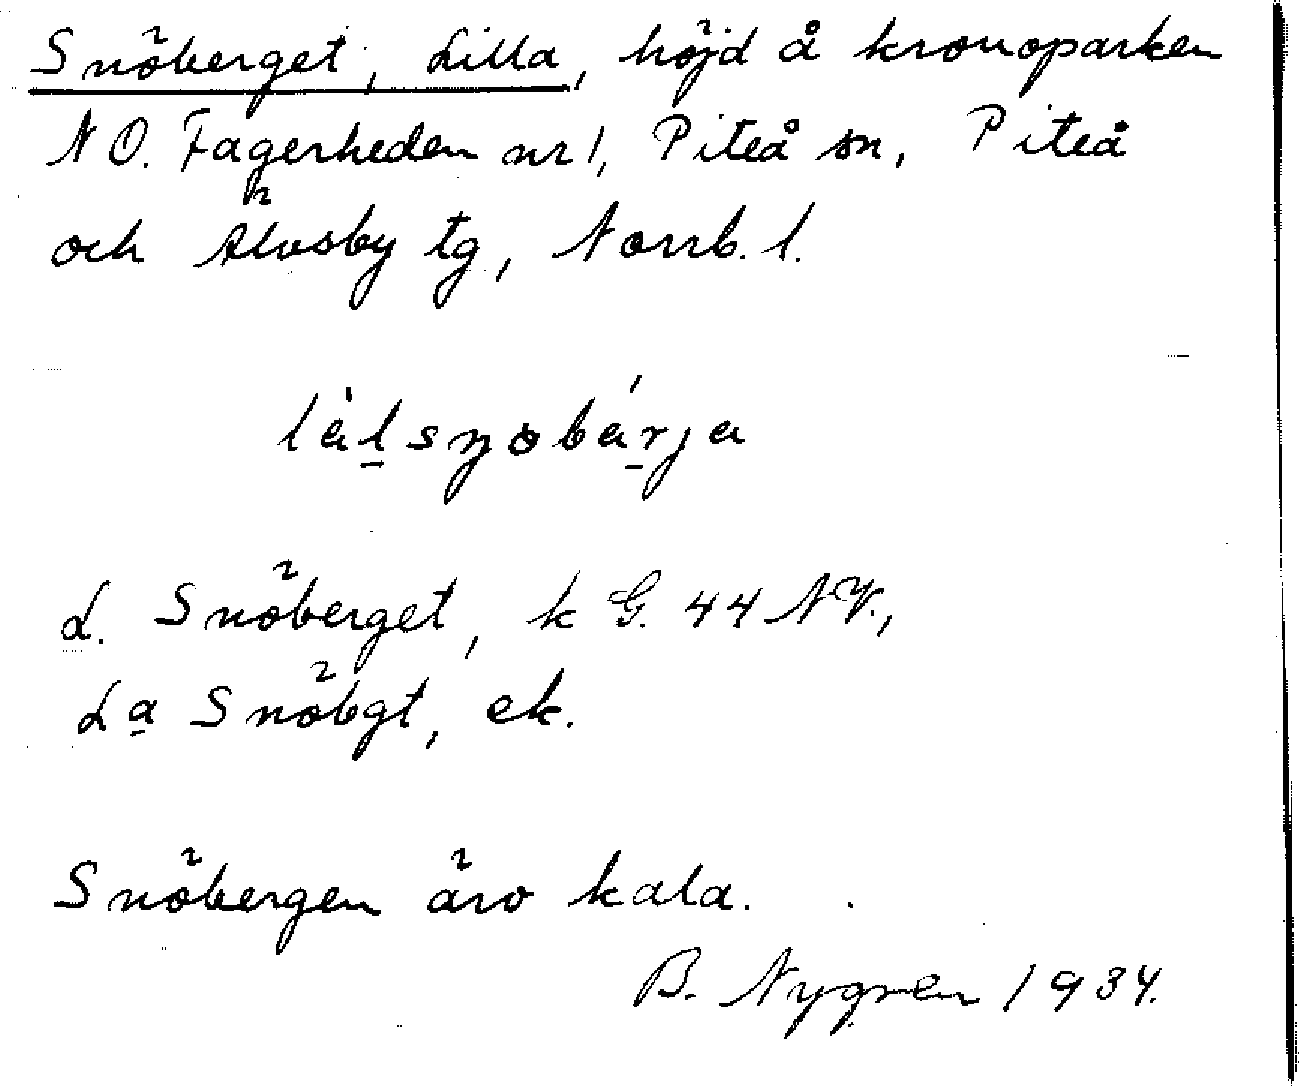 Snöberget, Lilla, höjd å kronoparken
NO. Fagerheden nr 1, Piteå sn, Piteå
och Älvsby tg, Norrb. l.
L. Snöberget, k G. 44 NV.,
La Snöbgt, ek.
Snöbergen äro kala.
B. Nygren 1934.